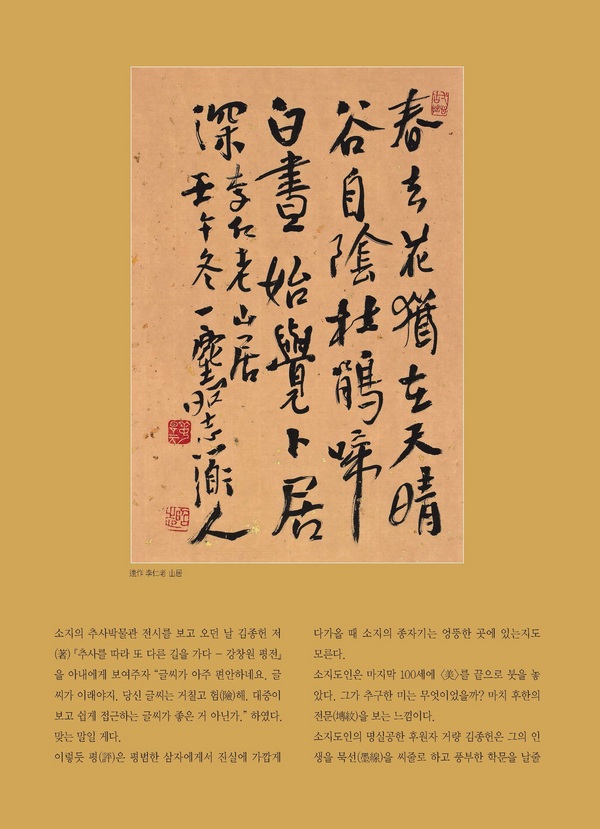 春去花猶在天晴
谷自陰杜鵑啼
白晝始覺卜居
深
李仁老山居
壬午冬一 志道人
李仁老 山居
소지의 추사박물관 전시를 보고 오던 날 김종헌 저
(著) 『추사를 따라 또 다른 길을 가다 - 강창원 평전』
을 아내에게 보여주자 “글씨가 아주 편안하네요. 글
씨가 이래야지. 당신 글씨는 거칠고 험(險)해. 대중이
보고 쉽게 접근하는 글씨가 좋은 거 아닌가.” 하였다.
맞는 말일 게다.
이렇듯 평(評)은 평범한 삼자에게서 진실에 가깝게
다가올 때 소지의 종자기는 엉뚱한 곳에 있는지도
모른다.
소지도인은 마지막 100세에 〈美〉를 끝으로 붓을 놓
았다. 그가 추구한 미는 무엇이었을까? 마치 후한의
전문(塼紋)을 보는 느낌이다.
소지도인의 명실공한 후원자 거량 김종헌은 그의 인
생을 묵선(墨線)을 씨줄로 하고 풍부한 학문을 날줄